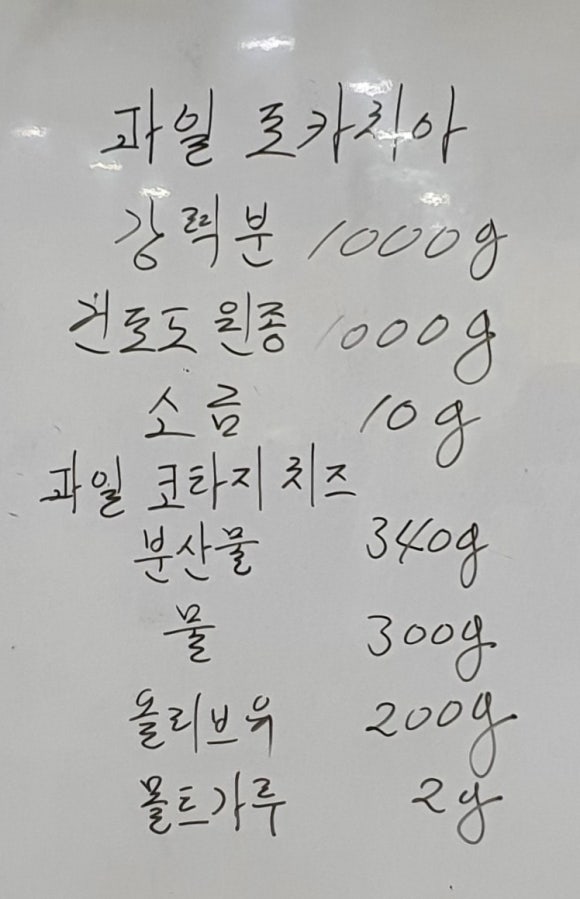 과일 포카치아
강력분 1000g
건포도 원종 1000g
소금 10g
과일 코타지 치즈
분산물 340g
물 300g
올리브유 200g
몰트가루 2g